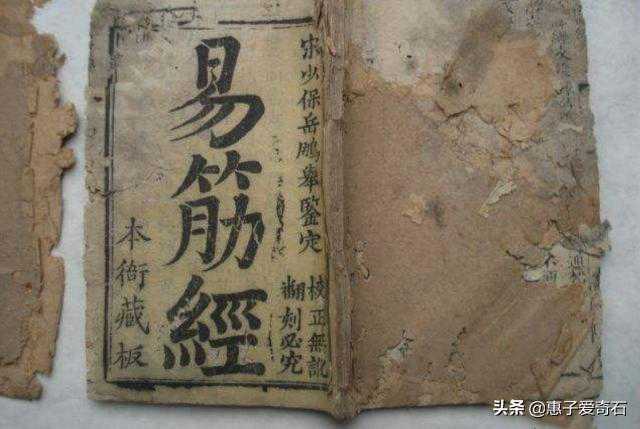 宋少保岳鵬舉鑒定
校正無訛
翻刻必究
易筋經
本衙藏板
头条 @惠子爱奇石